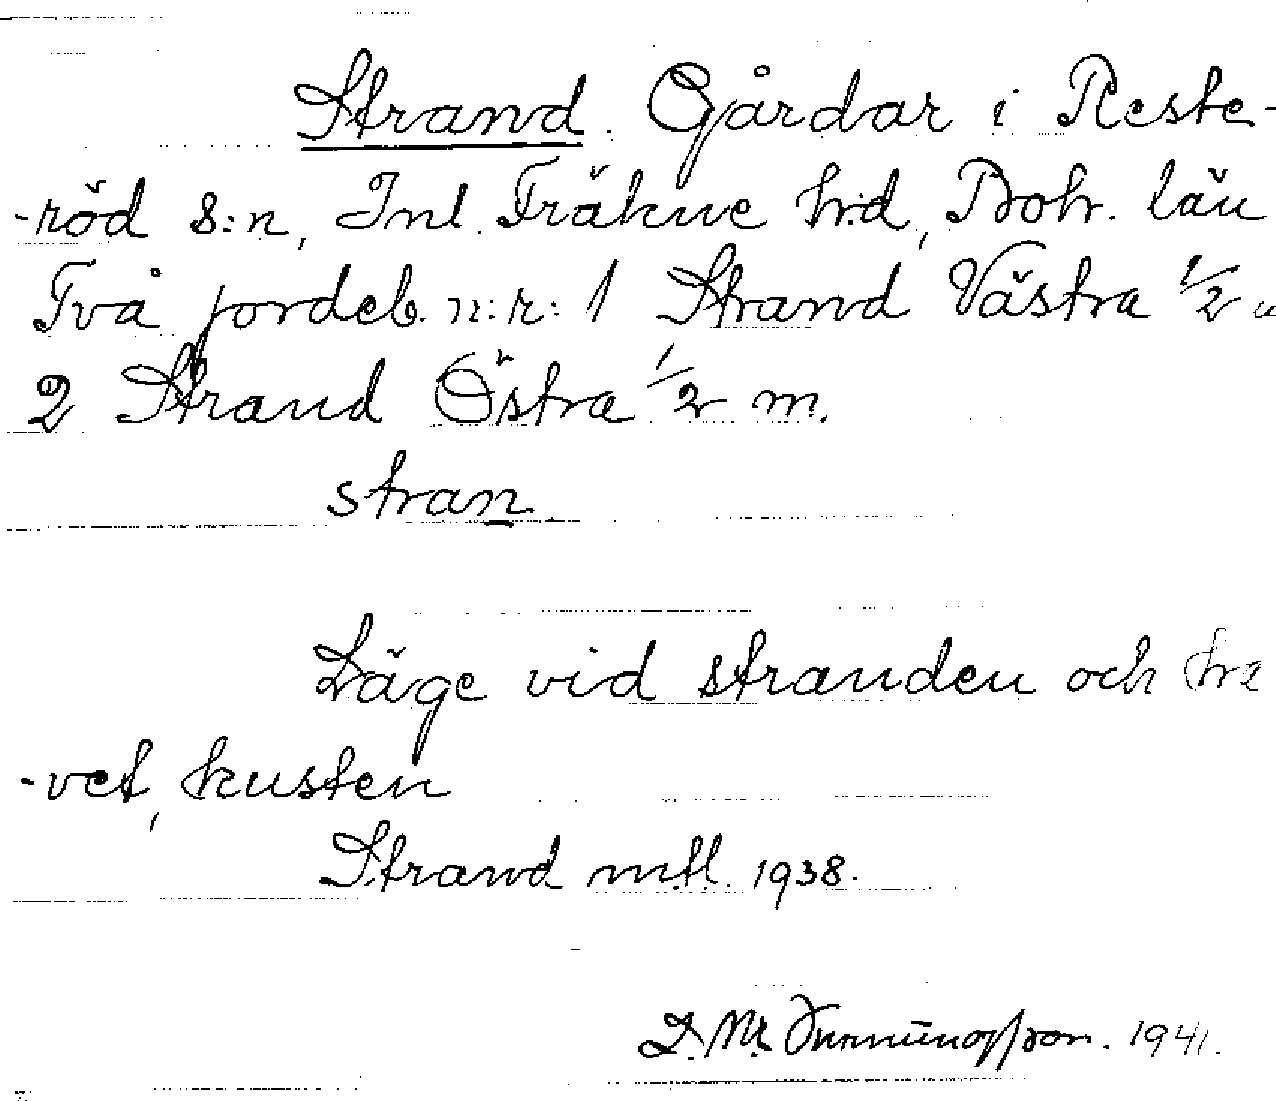 Strand. Gårdar i Reste-
-röd s:n, Inl. Fräkne h:d, Boh. län
Två jordeb. n:r: 1 Strand Västra 1/2
2 Strand Östra 1/2 m.
stran
Läge vid stranden och ha
-vet, kusten
Strand m.fl. 1938.
1941.